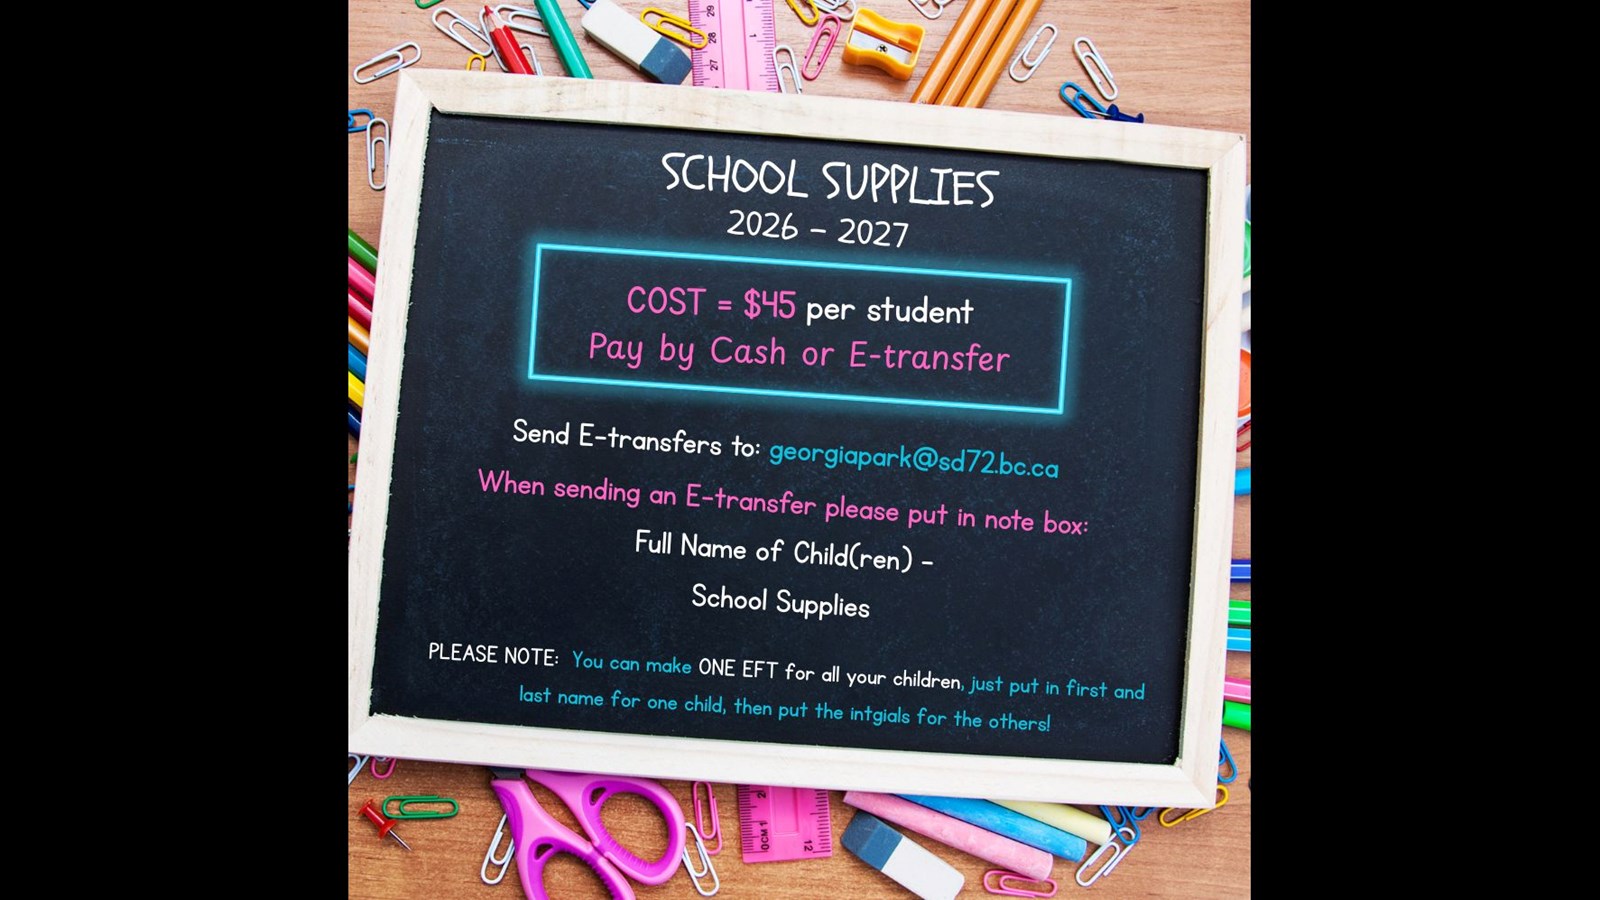 SCHOOL SUPPLIES
2026 - 2027
COST = $45 per student
Pay by Cash or E-transfer
Send E-transfers to: georgiapark@sd72.bc.ca
When sending an E-transfer please put in note box:
Full Name of Child(ren) -
School Supplies
PLEASE NOTE: You can make ONE EFT for all your children, just put in first and
last name for one child, then put the intgials for the others!
29
28
27
1
2
0CM 1
12